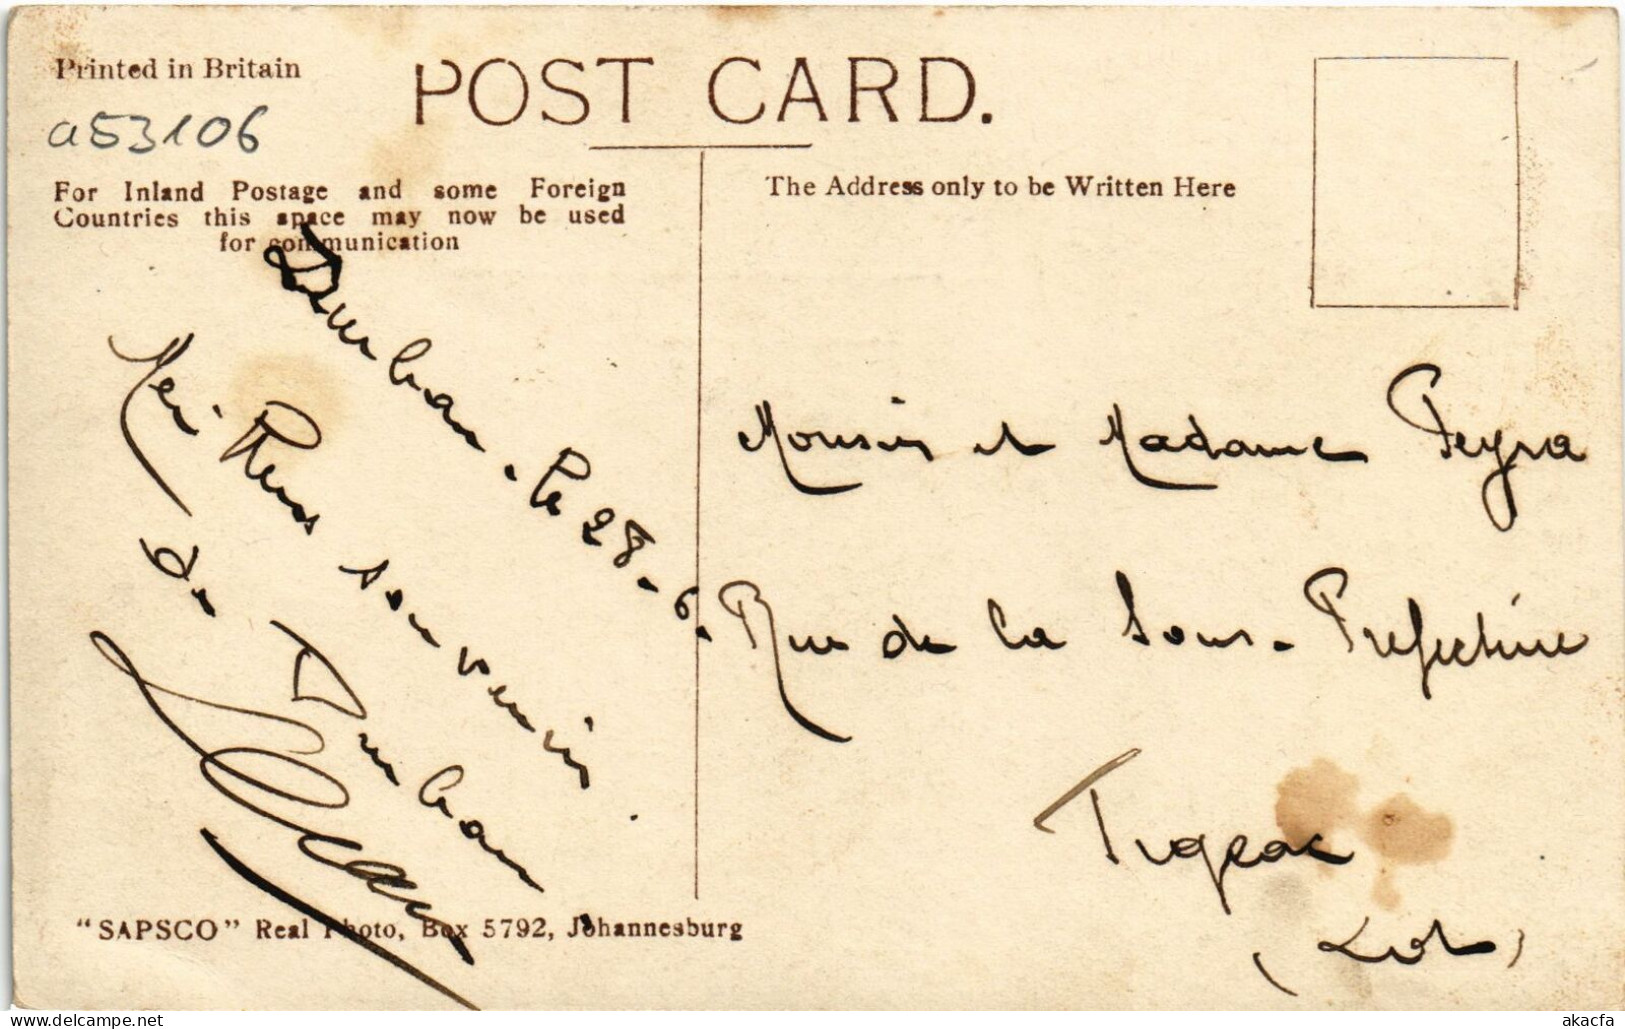 Printed in Britain
POST CARD.
a53106
For Inland Postage and some Foreign
Countries this space may now be used
for communication
The Address only to be Written Here
Durban. le 28-6-
souvenir.
de Durban
Jean
Monsieur et Madame Peyra
Rue de la Sous-Prefecture
Figeac
(Lot)
"SAPSCO" Real Photo, Box 5792, Johannesburg
akacfa
www.delcampe.net